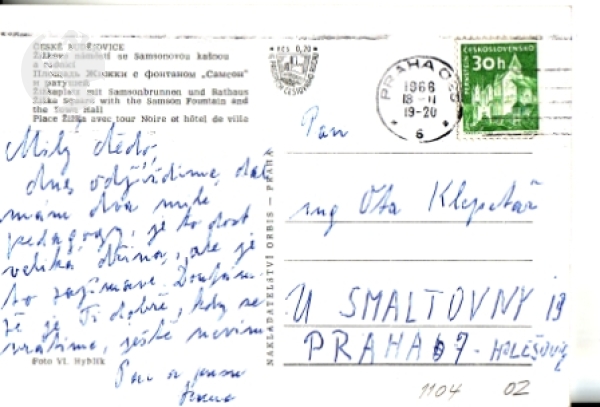 ČESKÉ BUDĚJOVICE
Žižkovo náměstí se Samsonovou kašnou
a radnicí
Площадь Жижки с фонтаном „Самсон"
и ратушей
Žižkaplatz mit Samsonbrunnen und Rathaus
Žižka Square with the Samson Fountain and
the Town Hall
Place Žižka avec tour Noire et hôtel de ville
Milý dědo,
dnes odjíždíme, dál
máme dva
pedagogy, je to dost
veliká dřina, ale je
to zajímavé. Doufám,
že je Ti dobře, kdy se
vrátíme, ještě nevím
Foto Vl. Hyblík
Kčs 0,20
NAKLADATELSTVÍ ORBIS — PRAHA
PRAHA 025
1966
18-II
19-20
6
ČESKOSLOVENSKO
30h
Pan
ing Ota Klepetář
U SMALTOVNY 19
PRAHA 7 - HOLEŠOV
1104 02